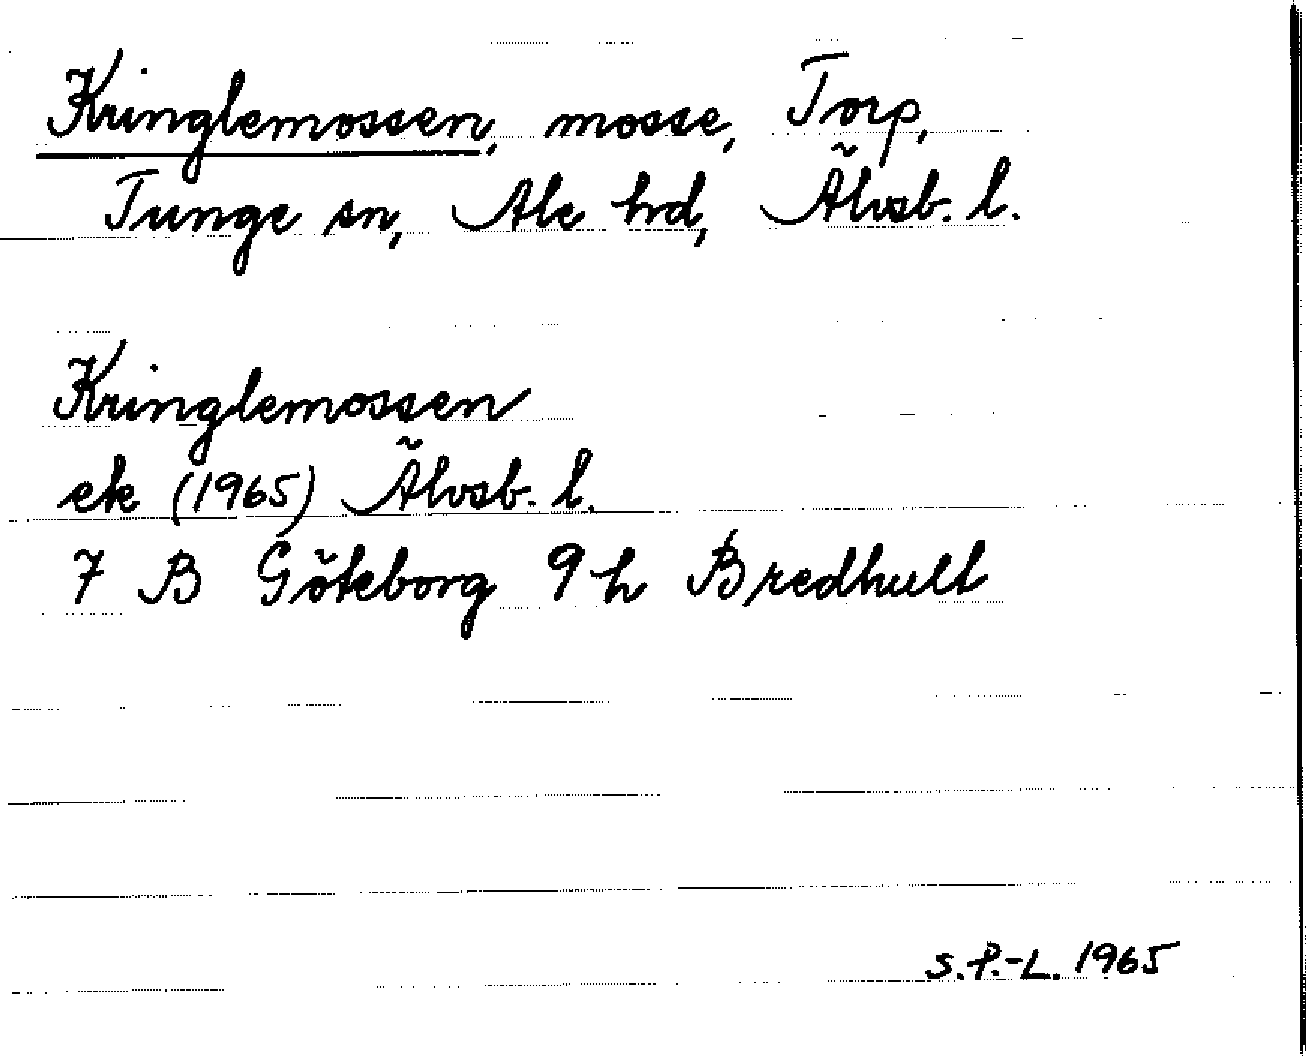 Kringlemossen, mosse, Torp,
Tunge sn, Ale hrd, Älvsb. l.
Kringlemossen
ek (1965) Älvsb. l.
7 B Göteborg 9 h Bredhult
S.P.-L. 1965